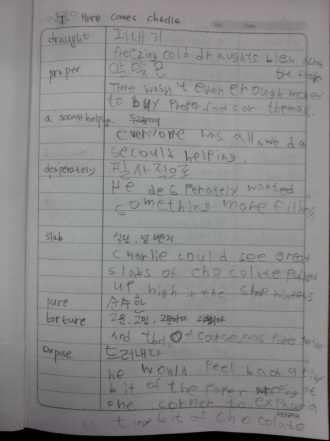 Here comes charlie
draught
freezing cold draughts blew across
the floor
proper 알맞은
There wasn't even enough money
to buy proper food for them all.
a second helping 두그릇째
everyone was allowed a
second helping.
desperately 필사적으로
He desperately wanted
something more filling
slab 석판, 널빤지
charlie could see great
slabs of chocolate piled
up high in the shop windows
pure 순수한
torture 고문, 고민,
And that Of course was pure torture
expose 드러내다
he would peel back a tiny
bit of the paper wrapping at
one corner to expose a
tiny bit of chocolate